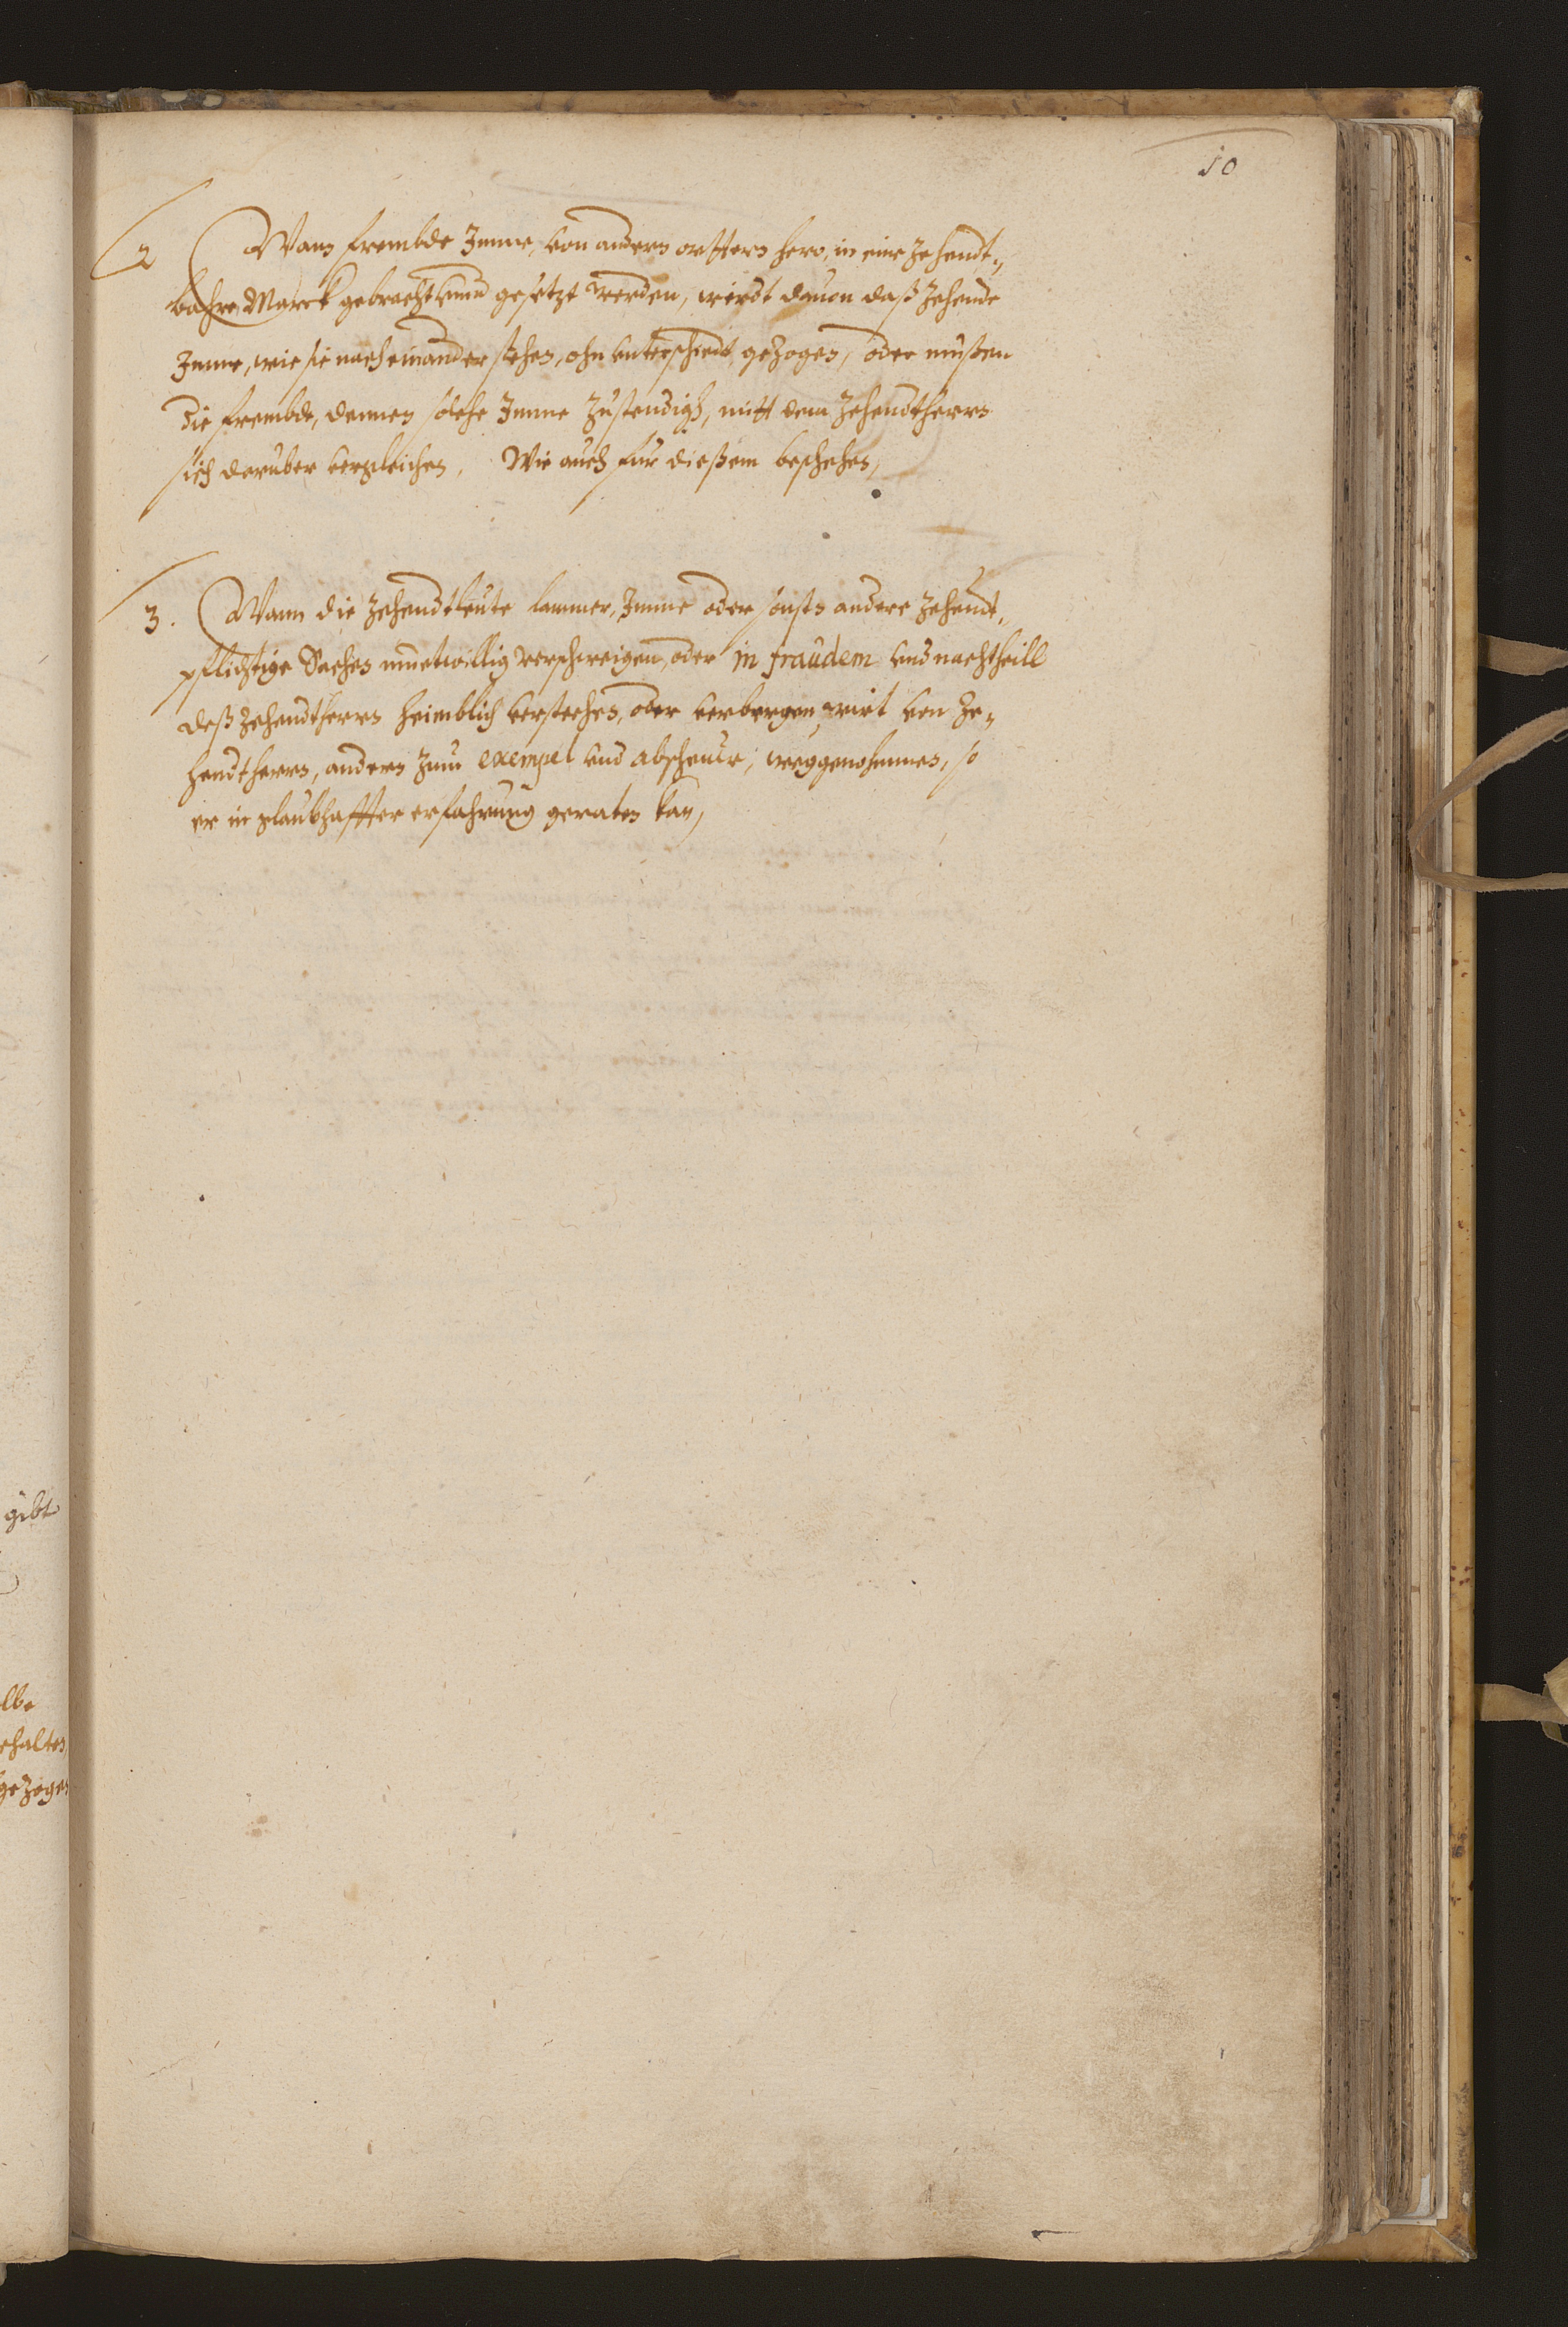 10
2 Wann frembde Imme, von andern orttern hero, in eine Zehendt„
bahre Marck gebracht unnd gesetzt werden, wirdt davon daß Zehende
Imme, wie sie nach einander stehen, ohn unterschiedt gezogen, oder mußen
die frembde, dennen solche Imme zustendigh, mitt dem Zehendtherrn
sich daruber vergleichen. Wie auch für dießem beschehen,
3. Wann die Zehendtleute lammer, Imme oder sonsten andere Zehendt„
pflichtige Sachen muetwillig verschweigen, oder in fraudem und nachtheill
deß Zehendtherrn heimblich verstechen, oder verbergen, wirt von Ze„
hendtherrn, andern zum exempel und abscheuw, weggenohmmen, so
er in glaubhaffter erfahrung geraten kan,
gibt
lbe
ehalten
gezogen